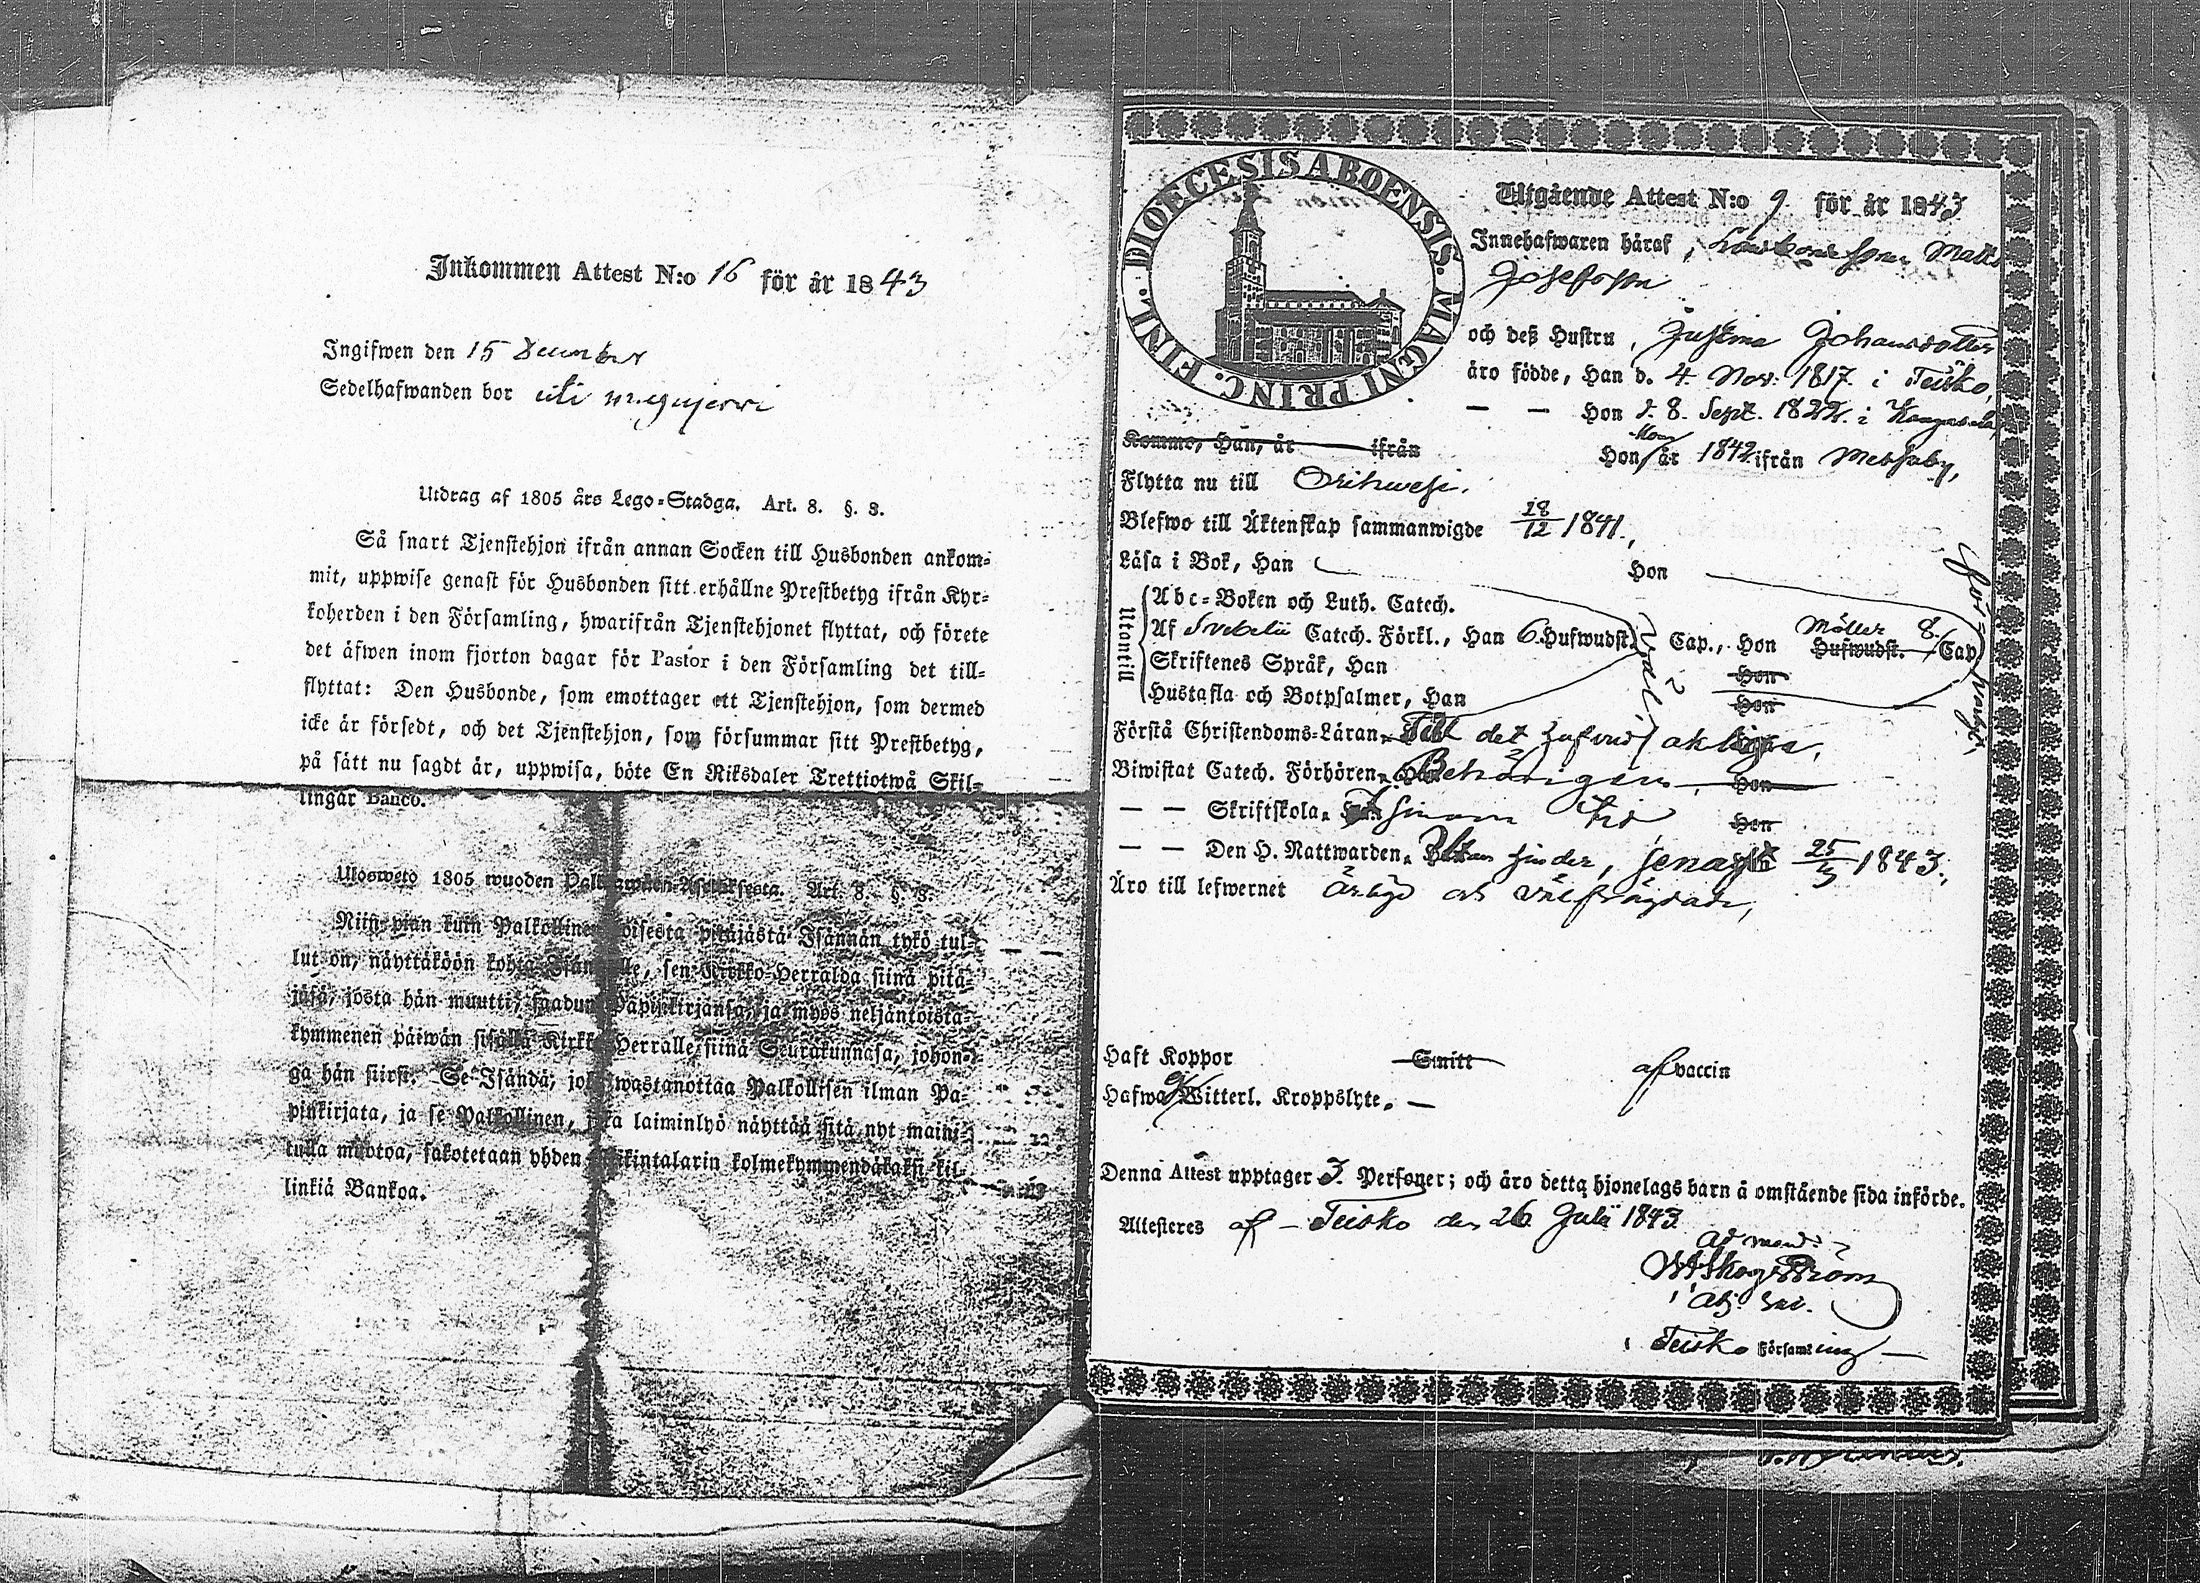 Inkommen Attest N:o 16 för år 1843
Ingifwen den 15 December
Sedelhafwanden bor uti
Utdrag af 1805 års Lego-Stadga. Art. 8. §. 8.
Så snart Tjenstehjon ifrån annan Socken till Husbonden ankom-
mit, uppwise genast för Husbonden sitt erhållne Prestbetyg ifrån Kyr-
koherden i den Församling, hwarifrån Tjenstehjonet flyttat, och förete
det äfwen inom fjorton dagar för Pastor i den Församling det till-
flyttat: Den Husbonde, som emottager ett Tjenstehjon, som dermed
icke är försedt, och det Tjenstehjon, som försummar sitt Prestbetyg,
på sätt nu sagdt är, uppwisa, böte En Riksdaler Trettiotwå Skil-
lingar Banco.
Ulosweto 1805 wuoden Palkawäen-Asetuksesta. Art. 8. §. 8.
Niin pian kuin Palkollinen toisesta pitäjästä Isännän tykö tul-
lut on, näyttäköön kohta Isännälle, sen Kirkko-Herralda siinä pitä-
jäsä, josta hän muutti, saadun Papinkirjansa, ja myös neljäntoista-
kymmenen päiwän sisällä Kirkko-Herralle siinä Seurakunnasa, johon-
ga hän siirsi. Se Isändä, joka wastanottaa Palkollisen ilman Pa-
pinkirjata, ja se Palkollinen, joka laiminlyö näyttää sitä nyt maini-
tulla muotoa, sakotetaan yhden Riikintalarin kolmekymmendäkaksi kil-
linkiä Bankoa.
DIOECESIS ABOENSIS. MAGNI PRINC. FINL.
Utgående Attest N:o 9 för år 1843
Innehafwaren häraf, Matts
Josefsson
och deß Hustru, Justina Johansdotter
äro födde, Han d. 4. Nov: 1817. i Teisko,
— — Hon d. 8. Sept. 1822. i Kangasala,
Kommo, Han, år ifrån Hon år 1842 ifrån Messuby,
Flytta nu till Orihwesi.
Blefwo till Äktenskap sammanwigde 28/12 1841.,
Läsa i Bok, Han Hon
Utantill
Abc-Boken och Luth. Catech.
Af Svebelii Catech. Förkl., Han 6. Hufwudst. Cap., Hon Möller Hufwudst. 8. Cap
Skriftenes Språk, Han Hon
Hustafla och Botpsalmer, Han Hon
Förstå Christendoms-Läran, Till det
Biwistat Catech. Förhören, Behörigen, Hon
— — Skriftskola, sinom tid Hon
— — Den H. Nattwarden, Utan hinder, senast 25/5 1843.,
Äro till lefwernet ärlige och välfrägdade,
Haft Koppor Smitt af vaccin
Hafwa ej Witterl. Kroppslyte. —
Denna Attest upptager 3. Personer; och äro detta hjonelags barn å omstående sida införde.
Attesteres af — Teisko den 26 Julii 1843.
ad mand:
Skogström
adj: Sac.
i Teisko Församling —